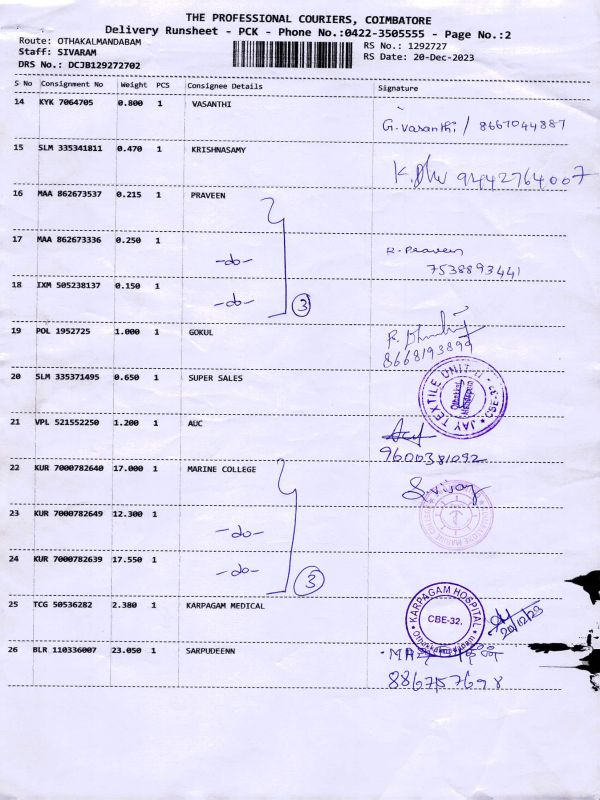 THE PROFESSIONAL COURIERS, COIMBATORE
Delivery Runsheet - PCK - Phone No.:0422-3505555 - Page No.:2
Route: OTHAKALMANDABAM
Staff: SIVARAM
DRS No.: DCJB129272702
RS No.: 1292727
RS Date: 20-Dec-2023
S No Consignment No Weight PCS Consignee Details Signature
14 KYK 7064705 0.800 1 VASANTHI
G.Vasanthi / 8667044887
15 SLM 335341811 0.470 1 KRISHNASAMY
9442764007
16 MAA 862673537 0.215 1 PRAVEEN
17 MAA 862673336 0.250 1
-do-
R. Praveen
7538893441
18 IXM 505238137 0.150 1
-do- 3
19 POL 1952725 1.000 1 GOKUL
8668193899
20 SLM 335371495 0.650 1 SUPER SALES
JAY TEXTILE UNIT-II CBE-32
21 VPL 521552250 1.200 1 AUC
9600381092
22 KUR 7000782640 17.000 1 MARINE COLLEGE
S.vijay
23 KUR 7000782649 12.300 1
-do-
24 KUR 7000782639 17.550 1
-do- 3
25 TCG 50536282 2.380 1 KARPAGAM MEDICAL
KARPAGAM HOSPITAL
CBE-32.
Othakkalmandapam
20/12/23
26 BLR 110336007 23.050 1 SARPUDEENN
886757698